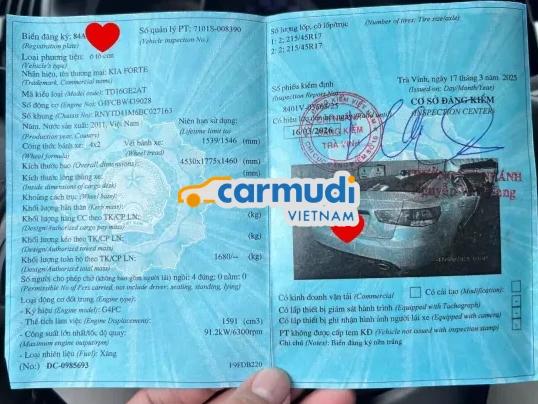 Biển đăng ký: 84A
(Registration plate)
Số quản lý PT: 7101S-008390
(Vehicle inspection No.)
Loại phương tiện: ô tô con
(Vehicle's type)
Nhãn hiệu, tên thương mại: KIA FORTE
(Trademark, Commercial name)
Mã kiểu loại (Model code): TD16GE2AT
Số động cơ (Engine No): G4FCBW439028
Số khung (Chassis No): RNYTD41M6BC027163
Năm, Nước sản xuất: 2011, Việt Nam
(Production year, Country)
Niên hạn sử dụng:
(Lifetime limit to)
Công thức bánh xe: 4x2
(Wheel formula)
Vết bánh xe: 1539/1546 (mm)
(Wheel tread)
Kích thước bao (Overall dimensions): 4530x1775x1460 (mm)
Kích thước lòng thùng xe: (mm)
(Inside dimensions of cargo deck)
Khoảng cách trục
Khối lượng bản thân (Kerb mass):
Khối lượng hàng CC theo TK/CP LN: (kg)
(Design/Authorized cargo pay mass)
Khối lượng kéo theo TK/CP LN: (kg)
(Design/Authorized towed mass)
Khối lượng toàn bộ theo TK/CP LN: 1680/-- (kg)
(Design/Authorized total mass)
Số người cho phép chở (không bao gồm người lái) ngồi: 4 đứng: 0 nằm: 0
(Permissible No of Pers carried, not include driver: seating, standing, lying)
Loại động cơ đốt trong (Engine type):
- Ký hiệu (Engine model): G4FC
- Thể tích làm việc (Engine Displacement): 1591 (cm3)
- Công suất lớn nhất/tốc độ quay: 91.2kW/6300rpm
(Maximum engine output/rpm)
- Loại nhiên liệu (Fuel): Xăng
(No.) DC-0985693
F9FDB220
Số lượng lốp, cỡ lốp/trục
(Number of tires: Tire size/axle)
1: 2; 215/45R17
2: 2; 215/45R17
Số phiếu kiểm định
(Inspection Report No)
8401V-03868/25
Trà Vinh, ngày 17 tháng 3 năm 2025
(Issued on: Day/Month/Year)
CƠ SỞ ĐĂNG KIỂM
(INSPECTION CENTER)
Có hiệu lực đến hết ngày
16/03/2026
TRÀ VINH
carmudi
VIETNAM
Có kinh doanh vận tải (Commercial
Có cải tạo (Modification):
Có lắp thiết bị giám sát hành trình (Equipped with Tachograph)
Có lắp thiết bị ghi nhận hình ảnh người lái xe (Equipped with camera)
PT không được cấp tem KĐ (Vehicle not issued with inspection stamp)
Ghi chú (Notes): Biển đăng ký nền trắng